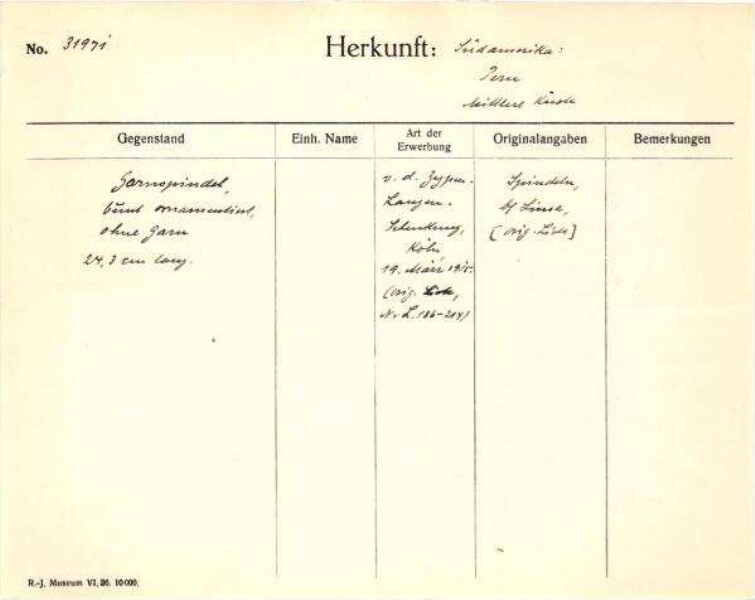 No. 31971
Herkunft: Südamerika:
Peru
Mittlere Küste
Gegenstand
Einh. Name
Art der
Erwerbung
Originalangaben
Bemerkungen
Garnspindel,
bunt ornamentiert,
ohne Garn
24,3 cm lang.
v. d. Zypen-
Langen-
Schenkung,
Köln
19. März
(orig. Liste,
N. L. 186-214)
Spindeln,
b/ Lima,
[orig. Liste]
R.-J. Museum VI, 26. 10000.